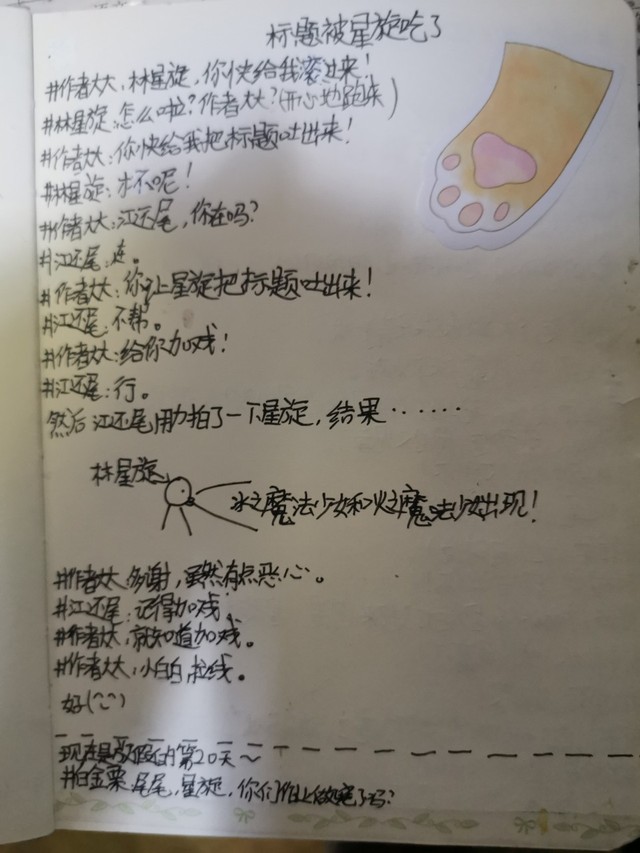 标题被星旋吃了
#作者大大,林星旋,你快给我滚过来!
#林星旋:怎么啦?作者大大?(开心地跑来)
#作者大大:你快给我把标题吐出来!
#林星旋:才不呢!
#作者大大:江还尾,你在吗?
#江还尾:在。
#作者大大:你让星旋把标题吐出来!
#江还尾:不帮。
#作者大大:给你加戏!
#江还尾:行。
然后江还尾用力拍了一下星旋,结果······
林星旋
冰之魔法少女和火之魔法少女出现!
#作者大大 多谢,虽然有点恶心。
#江还尾:记得加戏。
#作者大大,就知道加戏。
#作者大大,小白白,拉线。
好(~~)
现在是放假的第20天~
#白金栗 尾尾,星旋,你们作业做完了吗?